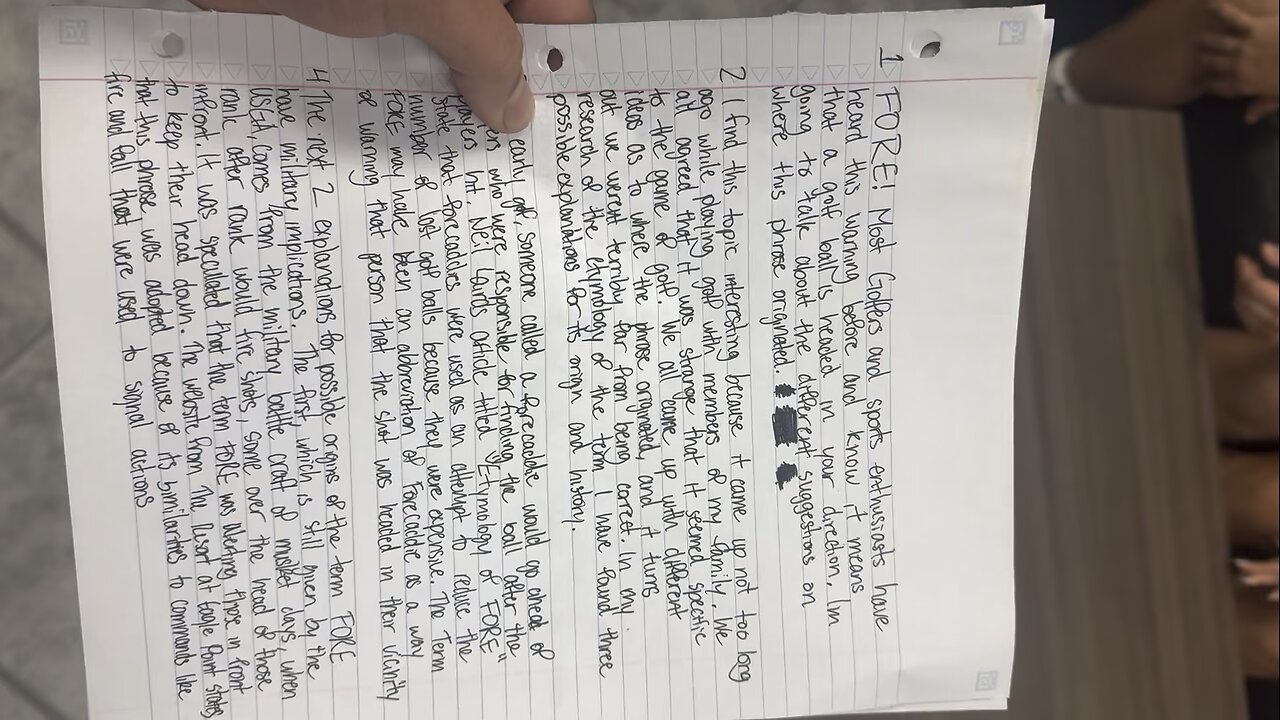 1 FORE! Most Golfers and sports enthusiasts have
heard this warning before and know it means
that a golf ball is headed in your direction. I'm
going to talk about the different suggestions on
where this phrase originated.
2 I find this topic interesting because it came up not too long
ago while playing golf with members of my family. We
all agreed that it was strange that it seemed specific
to the game of golf. We all came up with different
ideas as to where the phrase originated, and it turns
out we werent terribly far from being correct. In my
research of the etymology of the term I have found three
possible explanations for its origin and history.
early golf, someone called a forecaddie would go ahead of
who were responsible for finding the ball after the
players hit. Neil Lairds article titled "Etymology of FORE"
state that forecaddies were used as an attempt to reduce the
number of lost golf balls because they were expensive. The Term
FORE may have been an abbreviation of Forecaddie as a way
of warning that person that the shot was headed in their vicinity
4 The next 2 explanations for possible origins of the term FORE
have military implications. The first, which is still given by the
USGA, comes from the military battle craft of musket days, when
rank after rank would fire shots, some over the head of those
infront. It was speculated that the term FORE was alerting those in front
to keep their head down. The website from The Resort at Eagle Point states
that this phrase was adopted because of its similarities to commands like
fire and fall that were used to signal actions